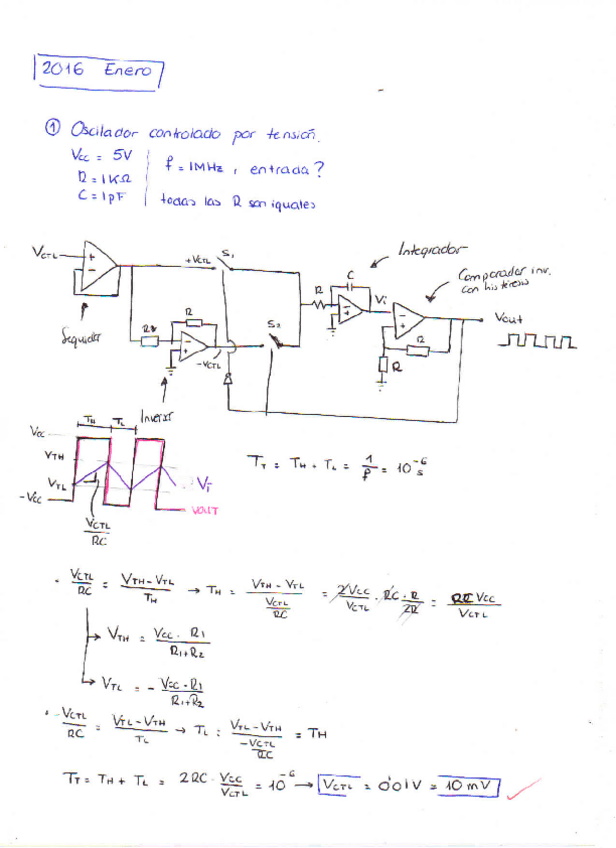 2016 Enero
① Oscilador controlado por tensión.
Vcc = 5V
R = 1KΩ
C = 1pF
f = 1MHz, entrada?
todas las R son iguales
VCTL
+VCTL
S1
Integrador
Comparador inv.
con histéresis
R
C
Vi
S2
Vout
R
R
-VCTL
R
R
Seguidor
Inversor
TH
TL
Vcc
VTH
VTL
-Vcc
Vi
VOUT
VCTL
RC
TT = TH + TL = 1/f = 10^-6 s
· VCTL/RC = (VTH - VTL)/TH → TH = (VTH - VTL)/(VCTL/RC) = 2Vcc/VCTL · RC · R/2R = RC Vcc/VCTL
→ VTH = Vcc · R1/(R1+R2)
→ VTL = - Vcc · R1/(R1+R2)
· -VCTL/RC = (VTL - VTH)/TL → TL = (VTL - VTH)/(-VCTL/RC) = TH
TT = TH + TL = 2RC · Vcc/VCTL = 10^-6 → VCTL = 0'01V = 10 mV